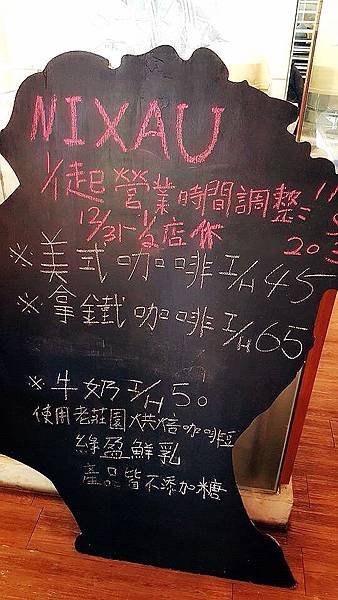 NIXAU
1/1起營業時間調整:
12/31~1/2店休
※美式咖啡I/H 45
※拿鐵咖啡I/H 65
※牛奶I/H 50
使用老莊園烘焙咖啡豆
綠盈鮮乳
產品皆不添加糖